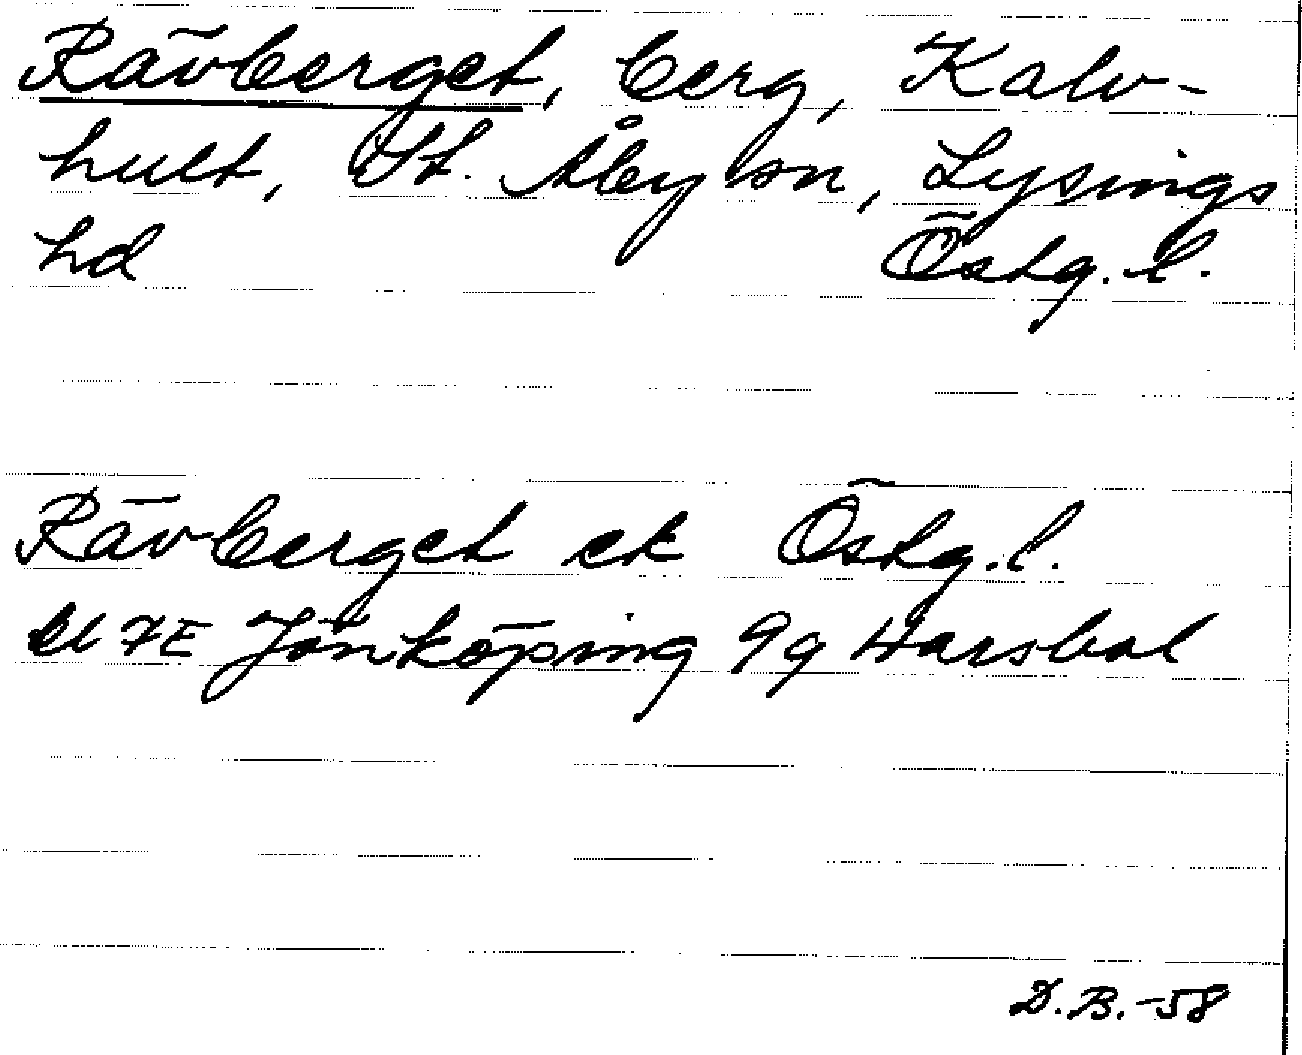 Rävberget, berg, Kalv-
hult, St. Åby sn, Lysings
hd Östg. l.
Rävberget ek Östg. l.
bl 7E Jönköping 9g Harsbol
D.B.-58